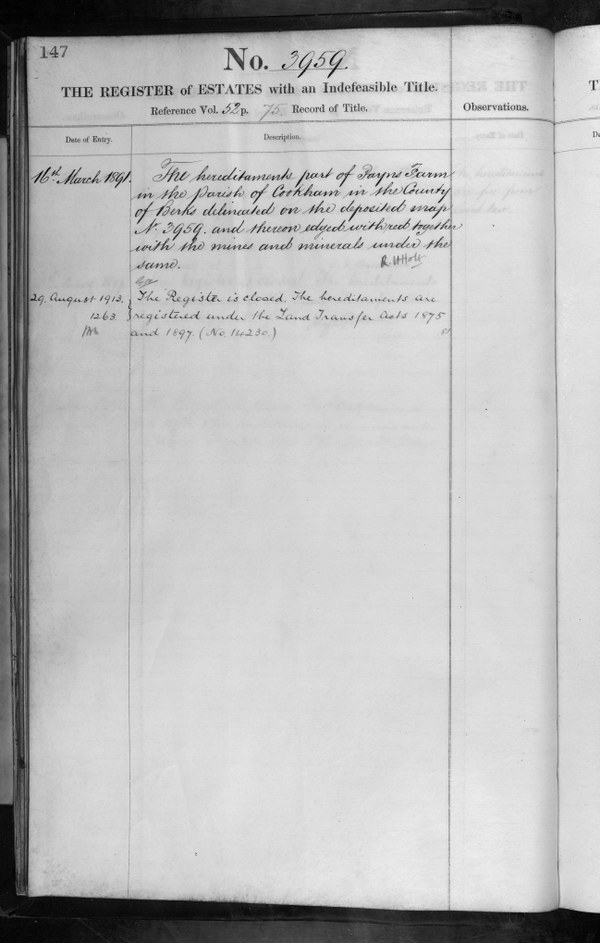 147
No. 3959.
THE REGISTER of ESTATES with an Indefeasible Title.
Reference Vol. 52 p. 75. Record of Title.
Observations.
Date of Entry.
Description.
16th March 1891.
The hereditaments part of Payns Farm
in the Parish of Cookham in the County
of Berks delineated on the deposited map
No. 3959. and thereon edged with red together
with the mines and minerals under the
same.
R H Holt
29. August 1913.
1263
The Register is closed. The hereditaments are
registered under the Land Transfer Acts 1875
and 1897. (No.